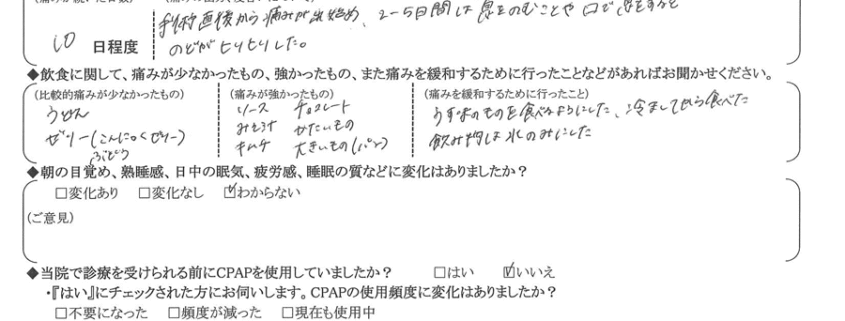 手術直後から痛みが出始め、2~5日間は息をのむことや口で息をすると
10 日程度
のどがヒリヒリした。
◆飲食に関して、痛みが少なかったもの、強かったもの、また痛みを緩和するために行ったことなどがあればお聞かせください。
(比較的痛みが少なかったもの) (痛みが強かったもの) (痛みを緩和するために行ったこと)
うどん ソース チョコレート うす味のものを食べるようにした、冷ましてから食べた
ゼリー(こんにゃくゼリー) みそ かたいもの 飲み物は水のみにした
ぶどう キムチ 大きいもの(パン)
◆朝の目覚め、熟睡感、日中の眠気、疲労感、睡眠の質などに変化はありましたか?
□変化あり □変化なし ☑わからない
(ご意見)
◆当院で診療を受けられる前にCPAPを使用していましたか? □はい ☑いいえ
・『はい』にチェックされた方にお伺いします。CPAPの使用頻度に変化はありましたか?
□不要になった □頻度が減った □現在も使用中